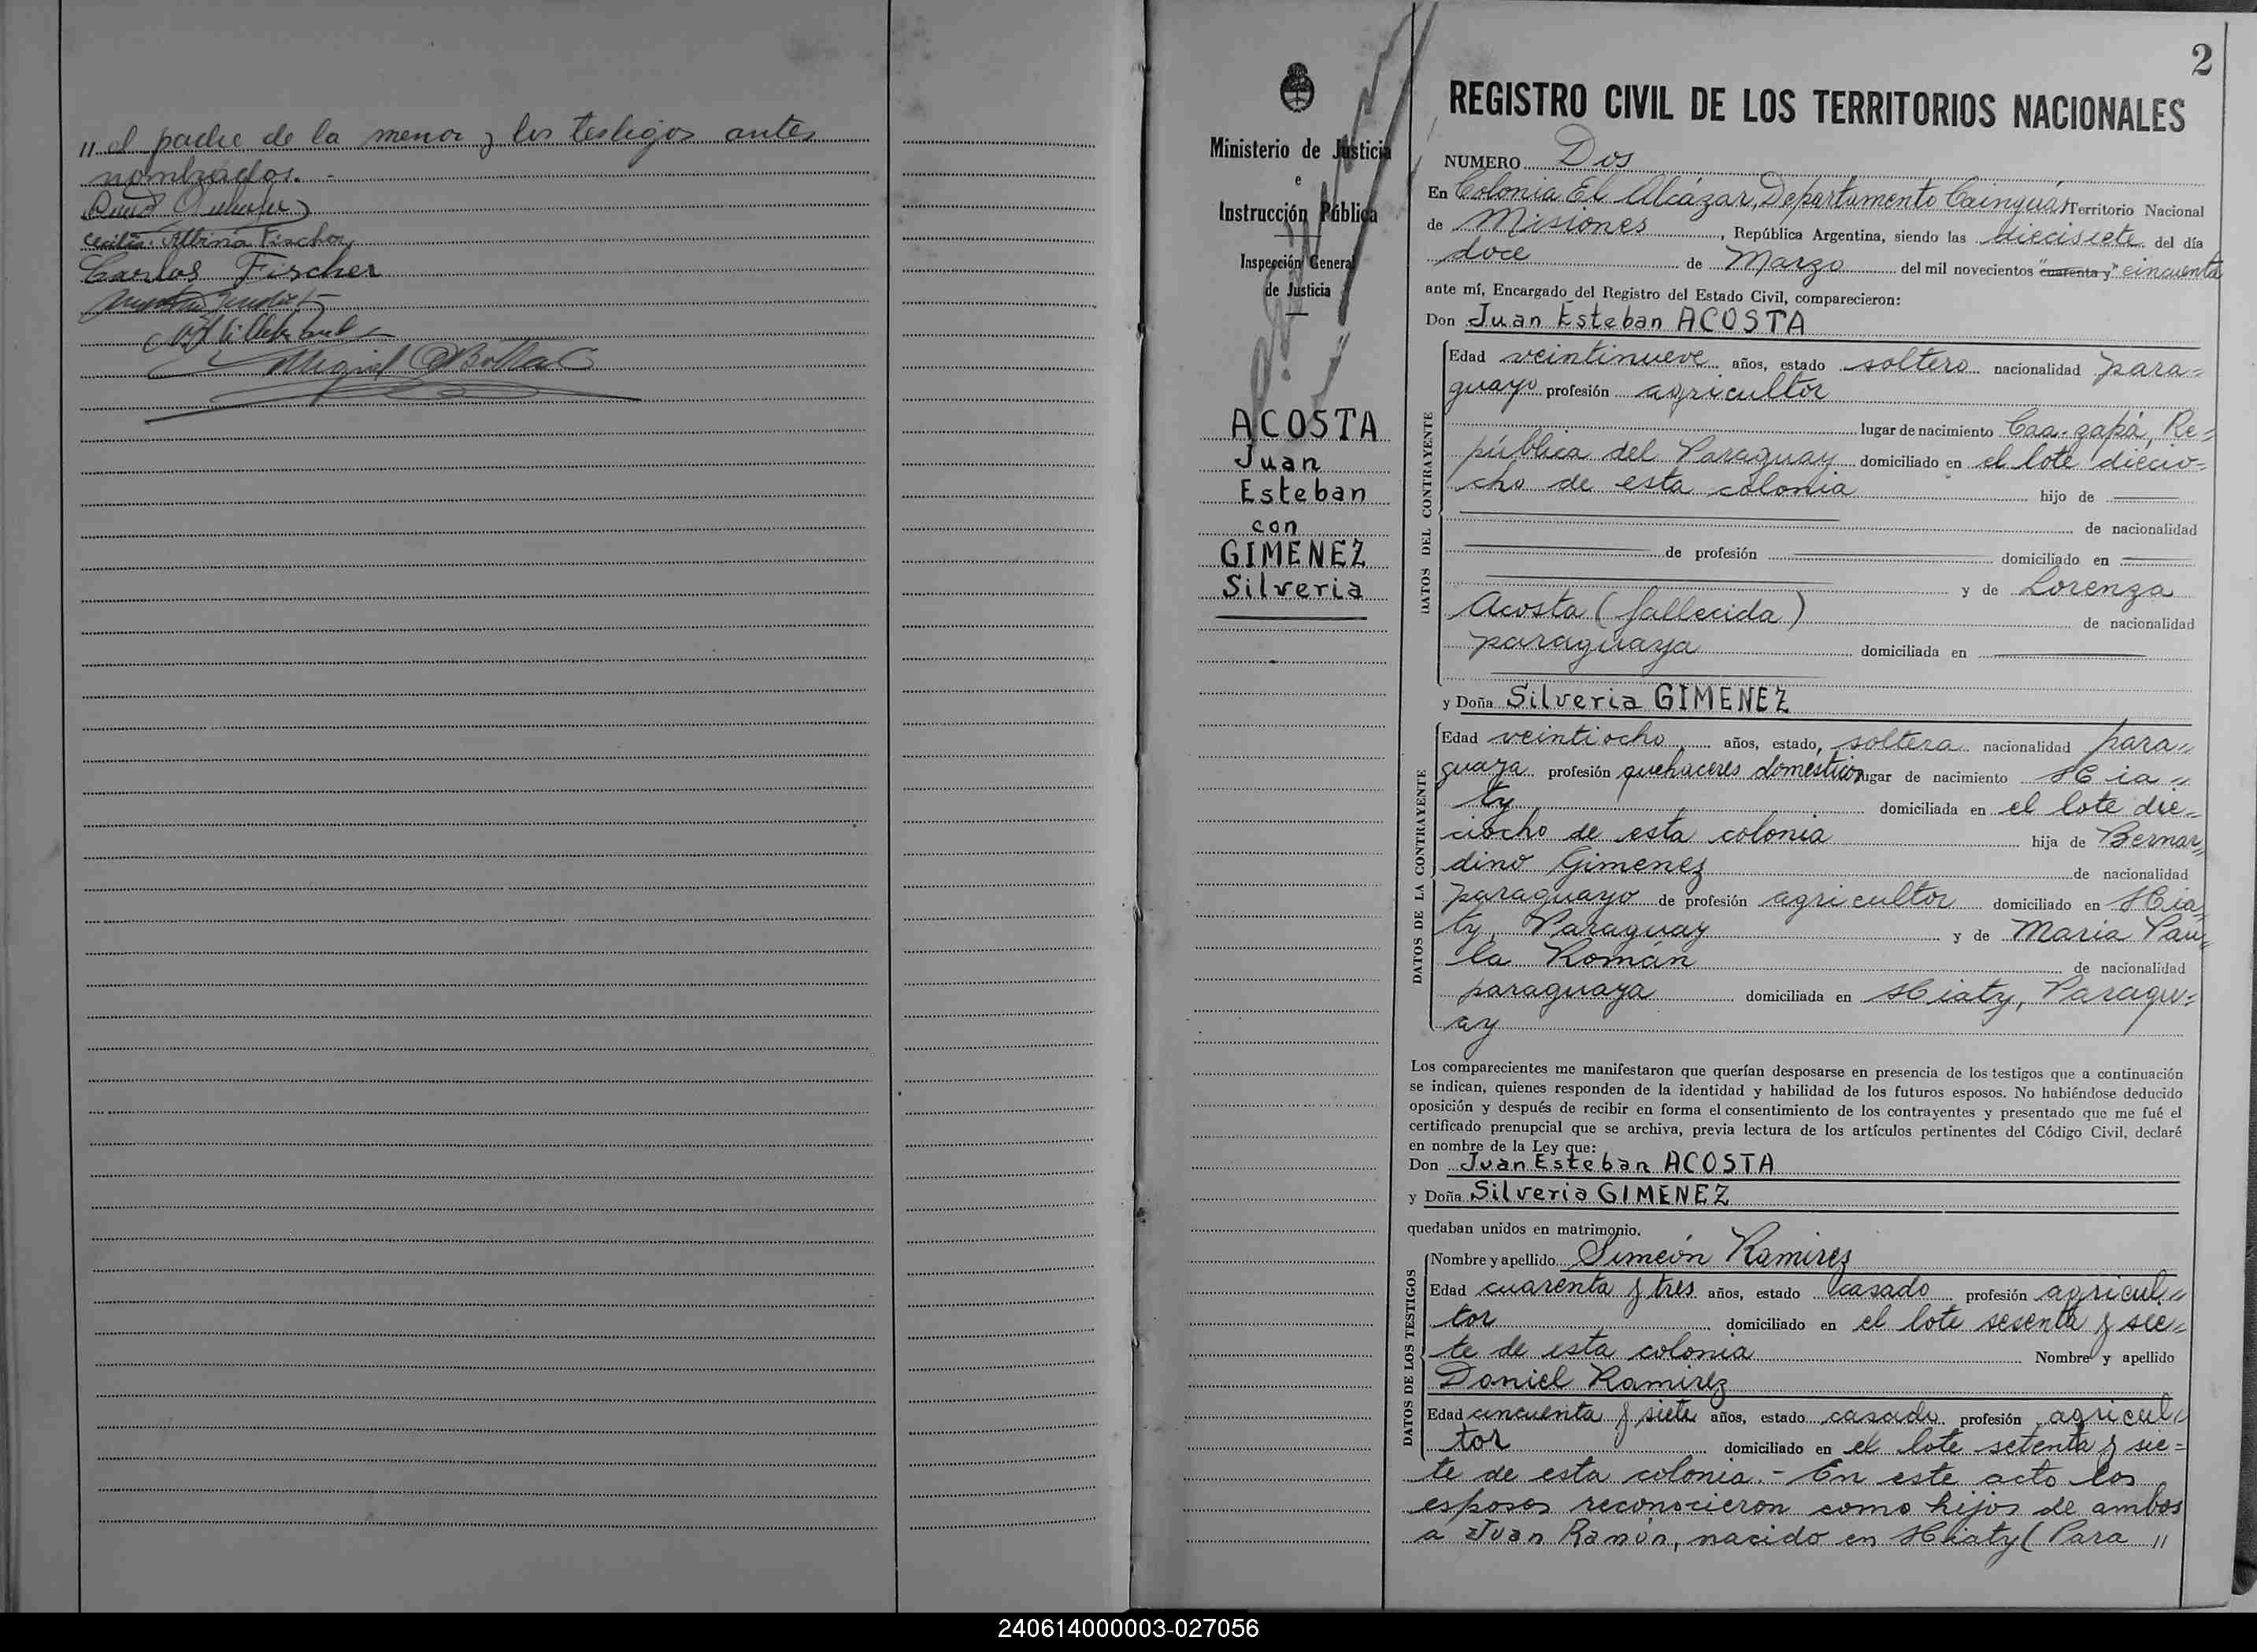 " el padre de la menor y los testigos antes
nombrados. -
Cecilia Albina Fischer
Carlos Fischer
Miguel
2
Ministerio de Justicia
e
Instrucción Pública
Inspección General
de Justicia
ACOSTA
Juan
Esteban
con
GIMENEZ
Silveria
REGISTRO CIVIL DE LOS TERRITORIOS NACIONALES
NUMERO Dos
En Colonia El Alcázar, Departamento Cainguás Territorio Nacional
de Misiones, República Argentina, siendo las diecisiete del día
doce de Marzo del mil novecientos "cuarenta y" cincuenta
ante mí, Encargado del Registro del Estado Civil, comparecieron:
Don Juan Esteban ACOSTA
DATOS DEL CONTRAYENTE
Edad veintinueve años, estado soltero nacionalidad para=
guayo profesión agricultor
lugar de nacimiento Caa-zapá, Re=
pública del Paraguay domiciliado en el lote diecio=
cho de esta colonia hijo de
de nacionalidad
de profesión domiciliado en
y de Lorenza
Acosta (fallecida) de nacionalidad
paraguaya domiciliada en
y Doña Silveria GIMENEZ
DATOS DE LA CONTRAYENTE
Edad veintiocho años, estado, soltera nacionalidad para"
guaya profesión quehaceres domésticos lugar de nacimiento Hia"
ty domiciliada en el lote die"
ciocho de esta colonia hija de Bernar"
dino Gimenez de nacionalidad
paraguayo de profesión agricultor domiciliado en Hia"
ty, Paraguay y de Maria Pau"
la Román de nacionalidad
paraguaya domiciliada en Hiaty, Paragu=
ay
Los comparecientes me manifestaron que querían desposarse en presencia de los testigos que a continuación
se indican, quienes responden de la identidad y habilidad de los futuros esposos. No habiéndose deducido
oposición y después de recibir en forma el consentimiento de los contrayentes y presentado que me fué el
certificado prenupcial que se archiva, previa lectura de los artículos pertinentes del Código Civil, declaré
en nombre de la Ley que:
Don Juan Esteban ACOSTA
y Doña Silveria GIMENEZ
quedaban unidos en matrimonio.
DATOS DE LOS TESTIGOS
Nombre y apellido Simeón Ramirez
Edad cuarenta y tres años, estado casado profesión agricul"
tor domiciliado en el lote sesenta y sie"
te de esta colonia Nombre y apellido
Daniel Ramirez
Edad cincuenta y siete años, estado casado profesión agricul"
tor domiciliado en el lote setenta y sie=
te de esta colonia. - En este acto los
esposos reconocieron como hijos de ambos
a Juan Ramón, nacido en Hiaty (Para "
240614000003-027056